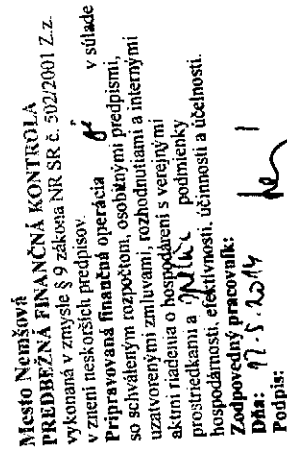 Mesto Nemšová
PREDBEŽNÁ FINANČNÁ KONTROLA
vykonaná v zmysle § 9 zákona NR SR č. 502/2001 Z.z.
v znení neskorších predpisov.
Pripravovaná finančná operácia je v súlade
so schváleným rozpočtom, osobitnými predpismi,
uzatvorenými zmluvami, rozhodnutiami a internými
aktmi riadenia o hospodárení s verejnými
prostriedkami a spĺňa podmienky
hospodárnosti, efektívnosti, účinnosti a účelnosti.
Zodpovedný pracovník:
Dňa: 12.5.2014
Podpis: